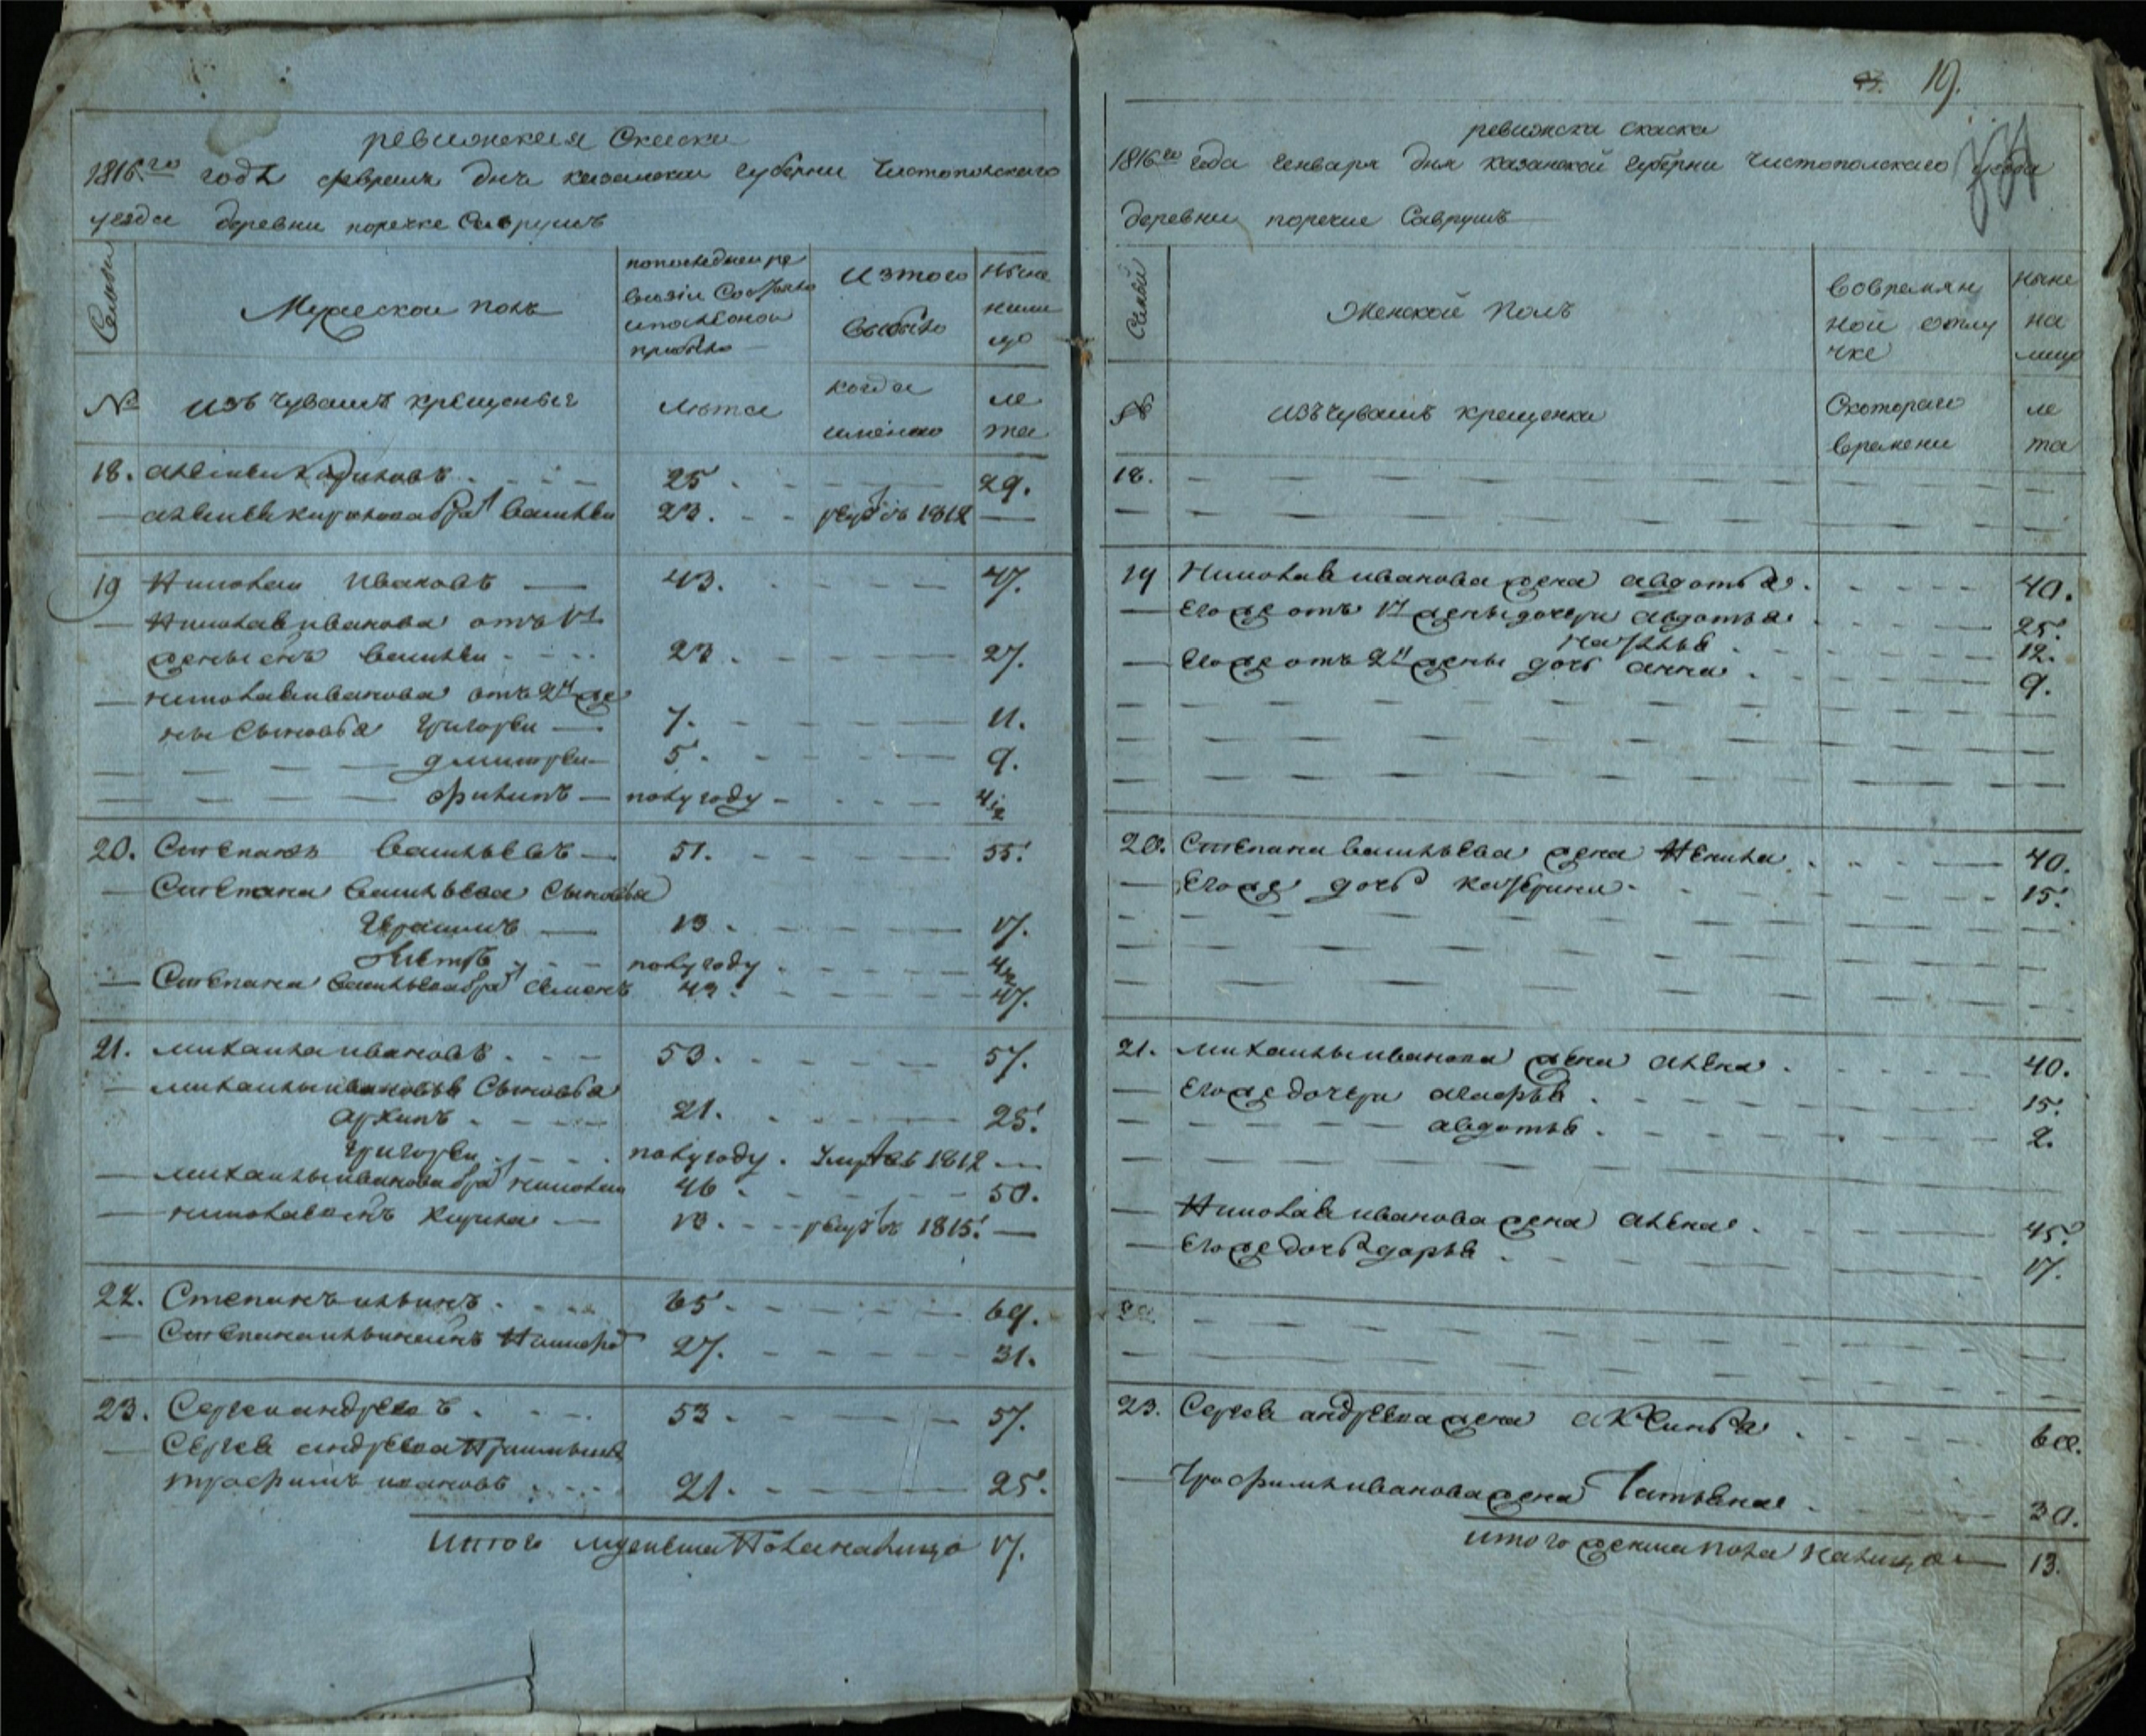 ревижская Скаска
1816го года февраля дня казанской губерни Чистопольскаго
уезда деревни поречке Саврушъ
Семьи
Мужеской полъ
попоследней ре
визіи Состояло
ипослеоной
прибыло
Изтого
выбыло
Ныне
нали
цо
№
изъ Чувашъ крещеныя
Лѣта
когда
имянно
ле
та
18. алексеи Кириловъ 25 29.
алексея кирилова брат василеи 23. рекрутъ 1812
19 Николаи Ивановъ 43. 47.
Николая иванова отъ 1й
жены сынъ василеи 23. 27.
николая иванова отъ 2й же
ны Сыновья григореи 7. 11.
дмитреи 5. 9.
филипъ полугоду 4 1/2
20. Степанъ Васильевъ 51. 55.
Степана Васильева Сыновья
Герасимъ 13. 17.
полугоду 4 1/2
Степана Васильева брат Семенъ 43. 47.
21. михаила ивановъ 53. 57.
михаилы ивановы Сыновья
архипъ 21. 25.
григореи полугоду. умре въ 1812
михаилы иванова брат николаи 46. 50.
николаев сынъ Кирила 18. рекрутъ 1815.
22. Степанъ ильинъ 65. 69.
Степана ильина сынъ 27. 31.
23. Сергеи андреевъ 53 57.
Сергея андреева Приимышъ
трофимъ ивановъ 21. 25.
Итого мужеска Пола налицо 17.
19.
ревижска скаска
1816го года Генваря дня казанской губерни чистополскаго уезда
деревни поречке Саврушъ
Семьи
Женской Полъ
Вовремян
ной отлу
чке
Ныне
на
лицо
№
изъ Чувашъ крещенка
Скотораго
времени
ле
та
18.
19 Николая иванова жена авдотья. 40.
Егоже отъ 1й жены дочери авдотья 25.
наталья 12.
Егоже отъ 2й жены дочь анна 9.
20. Степана васильева жена Ненила 40.
Егоже дочь катерина 15.
21. михаилы иванова жена алена 40.
Егоже дочери агафья 15.
авдотья 2.
Николая иванова жена алена 45.
Егоже дочь дарья 17.
22
23. Сергея андреева жена аксинья 60.
Трофима иванова жена Татьяна 30.
итого женска пола налицо 13.